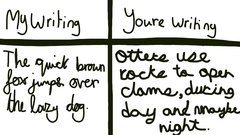 My Writing
Youre writing
The quick brown
fox jumps over
the lazy dog.
Otters use
rocks to open
clams, during
day and maybe
night.